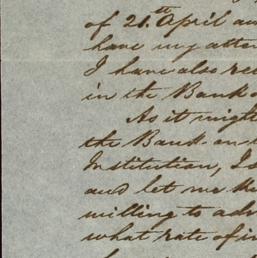 of 21.th April au
have my atten
I have also rec
in the Bank
As it migh
the Bank on
Institution, I s
and let me the
willing to adv
what rate of in